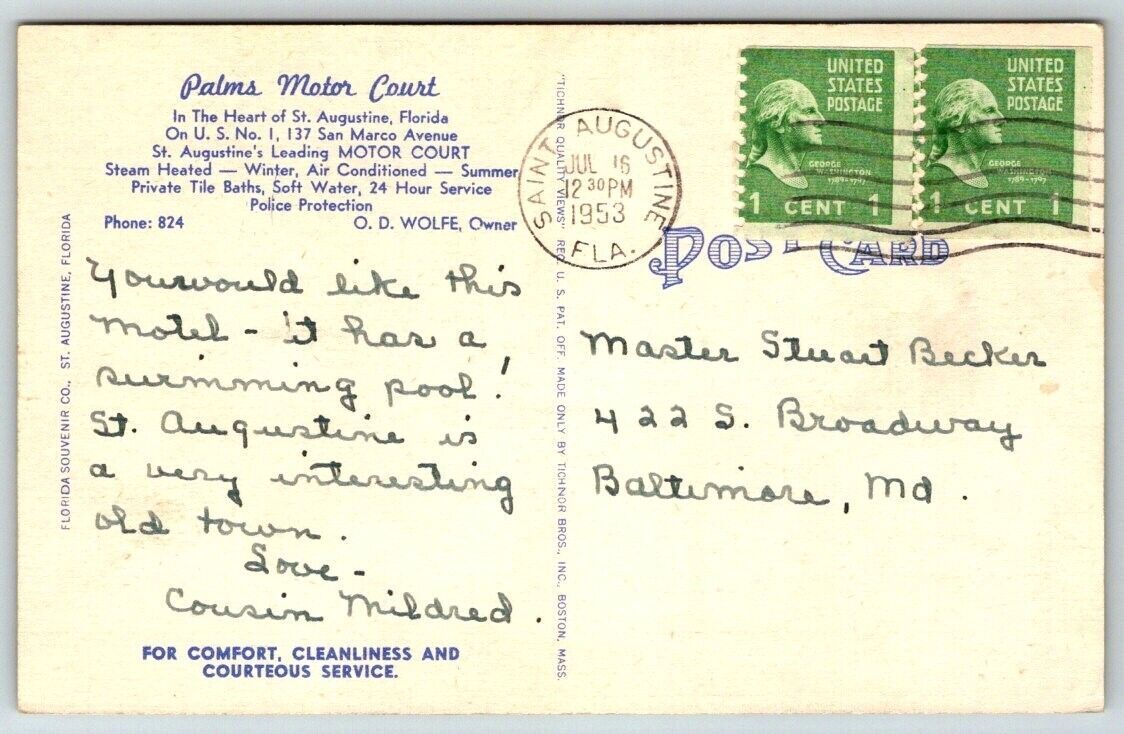 Palms Motor Court
In The Heart of St. Augustine, Florida
On U. S. No. 1, 137 San Marco Avenue
St. Augustine's Leading MOTOR COURT
Steam Heated — Winter, Air Conditioned — Summer
Private Tile Baths, Soft Water, 24 Hour Service
Police Protection
Phone: 824 O. D. WOLFE, Owner
You would like this
motel - it has a
swimming pool!
St. Augustine is
a very interesting
old town.
Love -
Cousin Mildred.
FOR COMFORT, CLEANLINESS AND
COURTEOUS SERVICE.
FLORIDA SOUVENIR CO., ST. AUGUSTINE, FLORIDA
"TICHNOR QUALITY VIEWS" REG. U. S. PAT. OFF. MADE ONLY BY TICHNOR BROS., INC., BOSTON, MASS.
SAINT AUGUSTINE
JUL 16
12 30 PM
1953
FLA.
UNITED
STATES
POSTAGE
GEORGE
WASHINGTON
1789-1797
1 CENT 1
UNITED
STATES
POSTAGE
GEORGE
WASHINGTON
1789-1797
1 CENT 1
POST CARD
Master Stuart Becker
422 S. Broadway
Baltimore, Md.